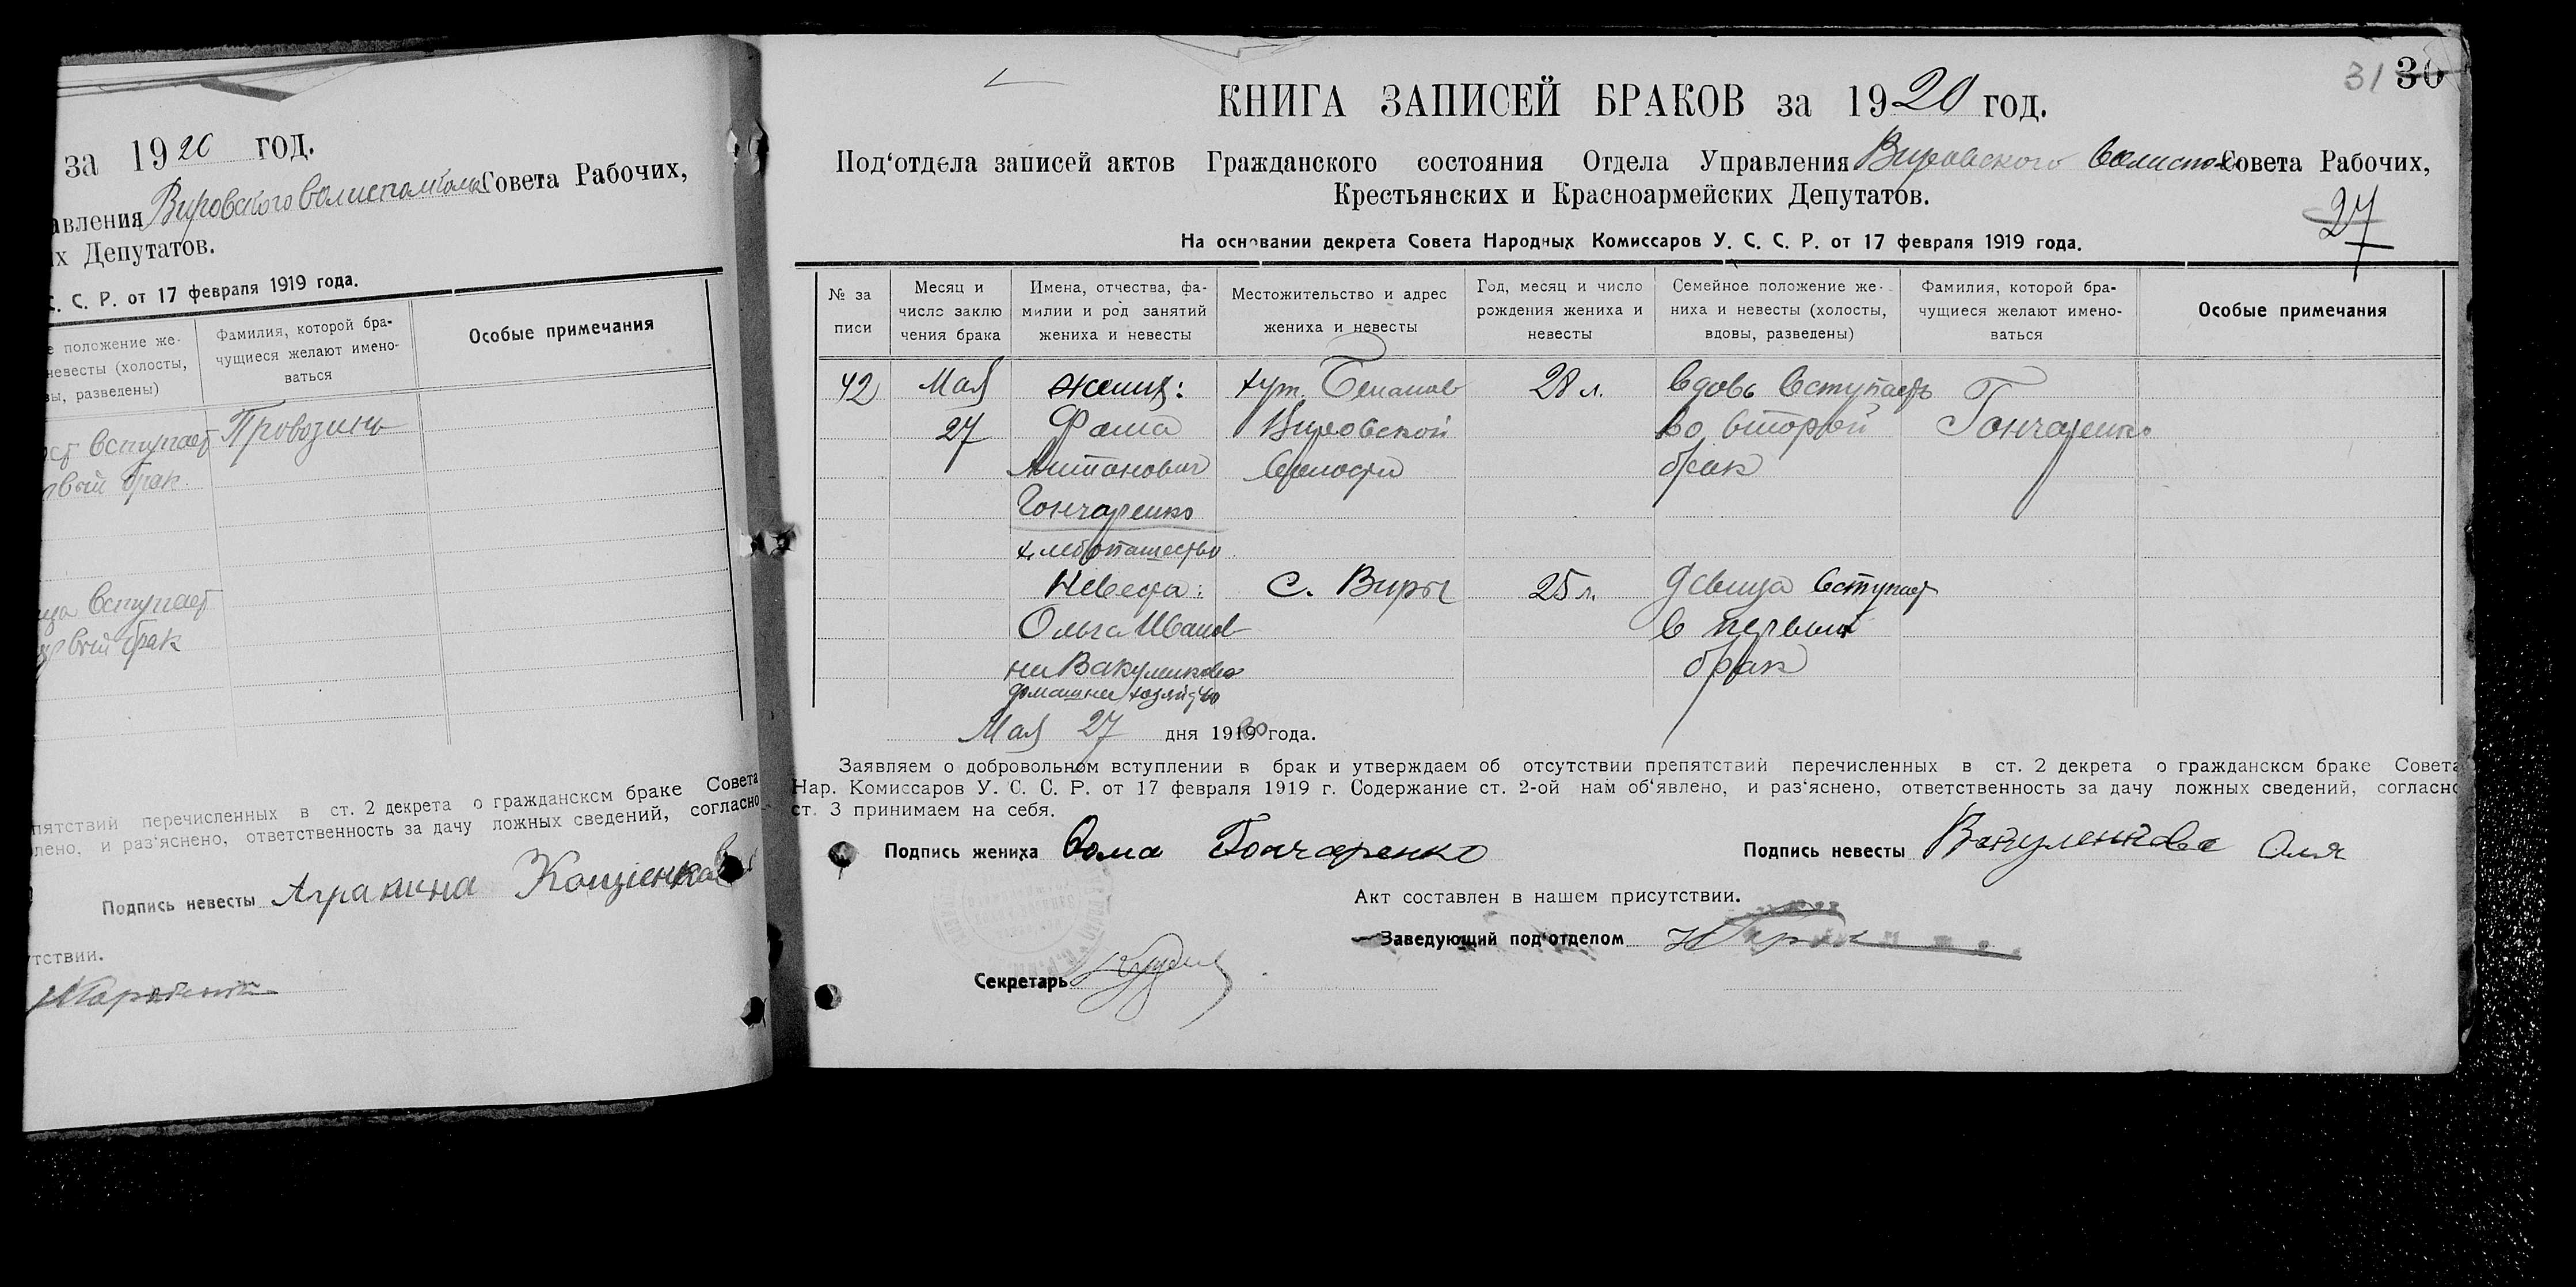 за 1920 год.
авления Вировского волисполкома Совета Рабочих,
их Депутатов.
С. С. Р. от 17 февраля 1919 года.
е положение же-
невесты (холосты,
вы, разведены)
Фамилия, которой бра-
чущиеся желают имено-
ваться
Особые примечания
вступает
Провозин
вый брак.
вступает
вый брак
пятствий перечисленных в ст. 2 декрета о гражданском браке Совета
лено, и раз'яснено, ответственность за дачу ложных сведений, согласно
Подпись невесты Аграпина
тствии.
31 30
КНИГА ЗАПИСЕЙ БРАКОВ за 1920 год.
Под'отдела записей актов Гражданского состояния Отдела Управления Вировского Совета Рабочих,
Крестьянских и Красноармейских Депутатов.
27
На основании декрета Совета Народных Комиссаров У. С. С. Р. от 17 февраля 1919 года.
№ за
писи
Месяц и
число заклю
чения брака
Имена, отчества, фа-
милии и род занятий
жениха и невесты
Местожительство и адрес
жениха и невесты
Год, месяц и число
рождения жениха и
невесты
Семейное положение же-
ниха и невесты (холосты,
вдовы, разведены)
Фамилия, которой бра-
чущиеся желают имено-
ваться
Особые примечания
42 Мая жених: хут. 28 л. вдовь вступаеть
27 Фома Вировской во второй Гончаренко
Антонович волости брак
Гончаренко
хлебопашество
Невеста: с. Виры 25 л. девица вступает
Ольга Иванов в первый
на Вакуленкова брак
домашнее хозяйство
Мая 27 дня 1920 года.
Заявляем о добровольном вступлении в брак и утверждаем об отсутствии препятствий перечисленных в ст. 2 декрета о гражданском браке Совета
Нар. Комиссаров У. С. С. Р. от 17 февраля 1919 г. Содержание ст. 2-ой нам об'явлено, и раз'яснено, ответственность за дачу ложных сведений, согласно
ст. 3 принимаем на себя.
Подпись жениха Фома Гончаренко
Подпись невесты Вакуленкова Оля
Акт составлен в нашем присутствии.
Заведующий под'отделом
Секретарь